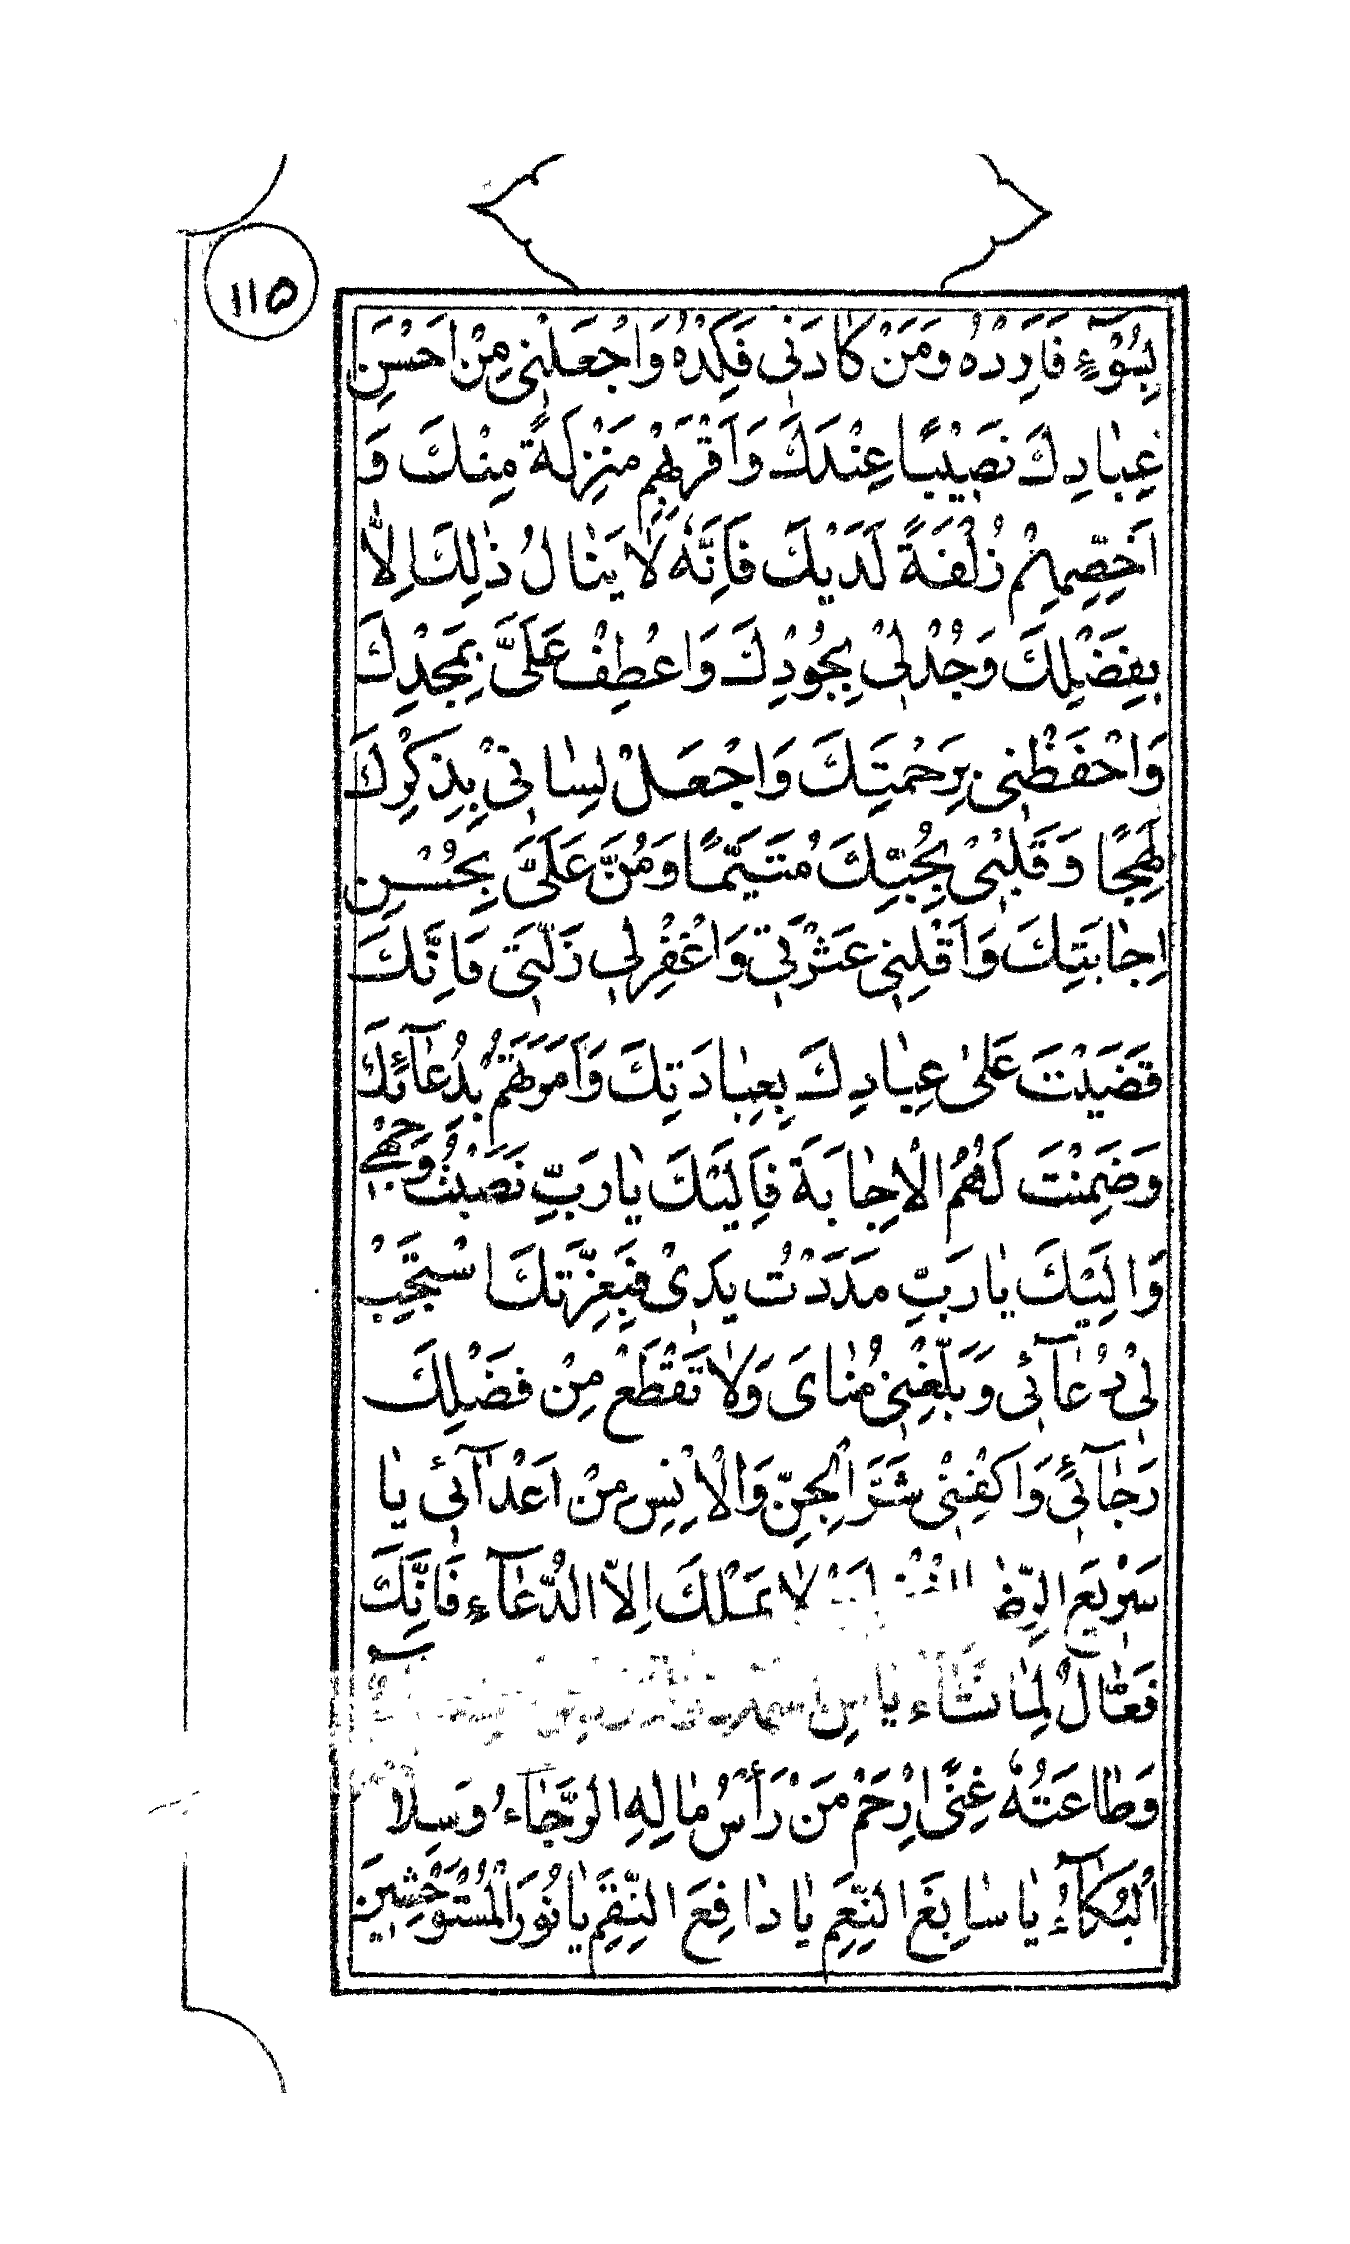 ۱۱۵
بِسُوْءٍ فَاَرِدْهُ وَمَنْ كَادَنِي فَكِدْهُ وَاجْعَلْنِي مِنْ اَحْسَنِ
عِبَادِكَ نَصِيْبًا عِنْدَكَ وَاَقْرَبِهِمْ مَنْزِلَةً مِنْكَ وَ
اَخَصِّهِمْ زُلْفَةً لَدَيْكَ فَاِنَّهُ لَا يَنَالُ ذٰلِكَ اِلَّا
بِفَضْلِكَ وَجُدْ لِيْ بِجُوْدِكَ وَاعْطِفْ عَلَىَّ بِمَجْدِكَ
وَاحْفَظْنِي بِرَحْمَتِكَ وَاجْعَلْ لِسَانِيْ بِذِكْرِكَ
لَهِجًا وَقَلْبِيْ بِحُبِّكَ مُتَيَّمًا وَمُنَّ عَلَىَّ بِحُسْنِ
اِجَابَتِكَ وَاَقِلْنِي عَثْرَتِي وَاغْفِرْ لِي زَلَّتِي فَاِنَّكَ
قَضَيْتَ عَلىٰ عِبَادِكَ بِعِبَادَتِكَ وَاَمَرْتَهُمْ بِدُعَآئِكَ
وَضَمِنْتَ لَهُمُ الْاِجَابَةَ فَاِلَيْكَ يَا رَبِّ نَصَبْتُ وَجْهِي
وَاِلَيْكَ يَا رَبِّ مَدَدْتُ يَدِىْ فَبِعِزَّتِكَ اسْتَجِبْ
لِيْ دُعَآئِي وَبَلِّغْنِي مُنَاىَ وَلَا تَقْطَعْ مِنْ فَضْلِكَ
رَجَآئِي وَاكْفِنِيْ شَرَّ الْجِنِّ وَالْاِنْسِ مِنْ اَعْدَآئِي يَا
سَرِيْعَ الرِّضَا لَا يَمْلِكُ اِلَّا الدُّعَآءَ فَاِنَّكَ
فَعَّالٌ لِمَا تَشَاءُ يَا مَنِ
وَطَاعَتُهُ غِنًى اِرْحَمْ مَنْ رَأْسُ مَالِهِ الرَّجَاءُ وَسِلَاحُهُ
الْبُكَآءُ يَا سَابِغَ النِّعَمِ يَا دَافِعَ النِّقَمِ يَا نُوْرَ الْمُسْتَوْحِشِينَ